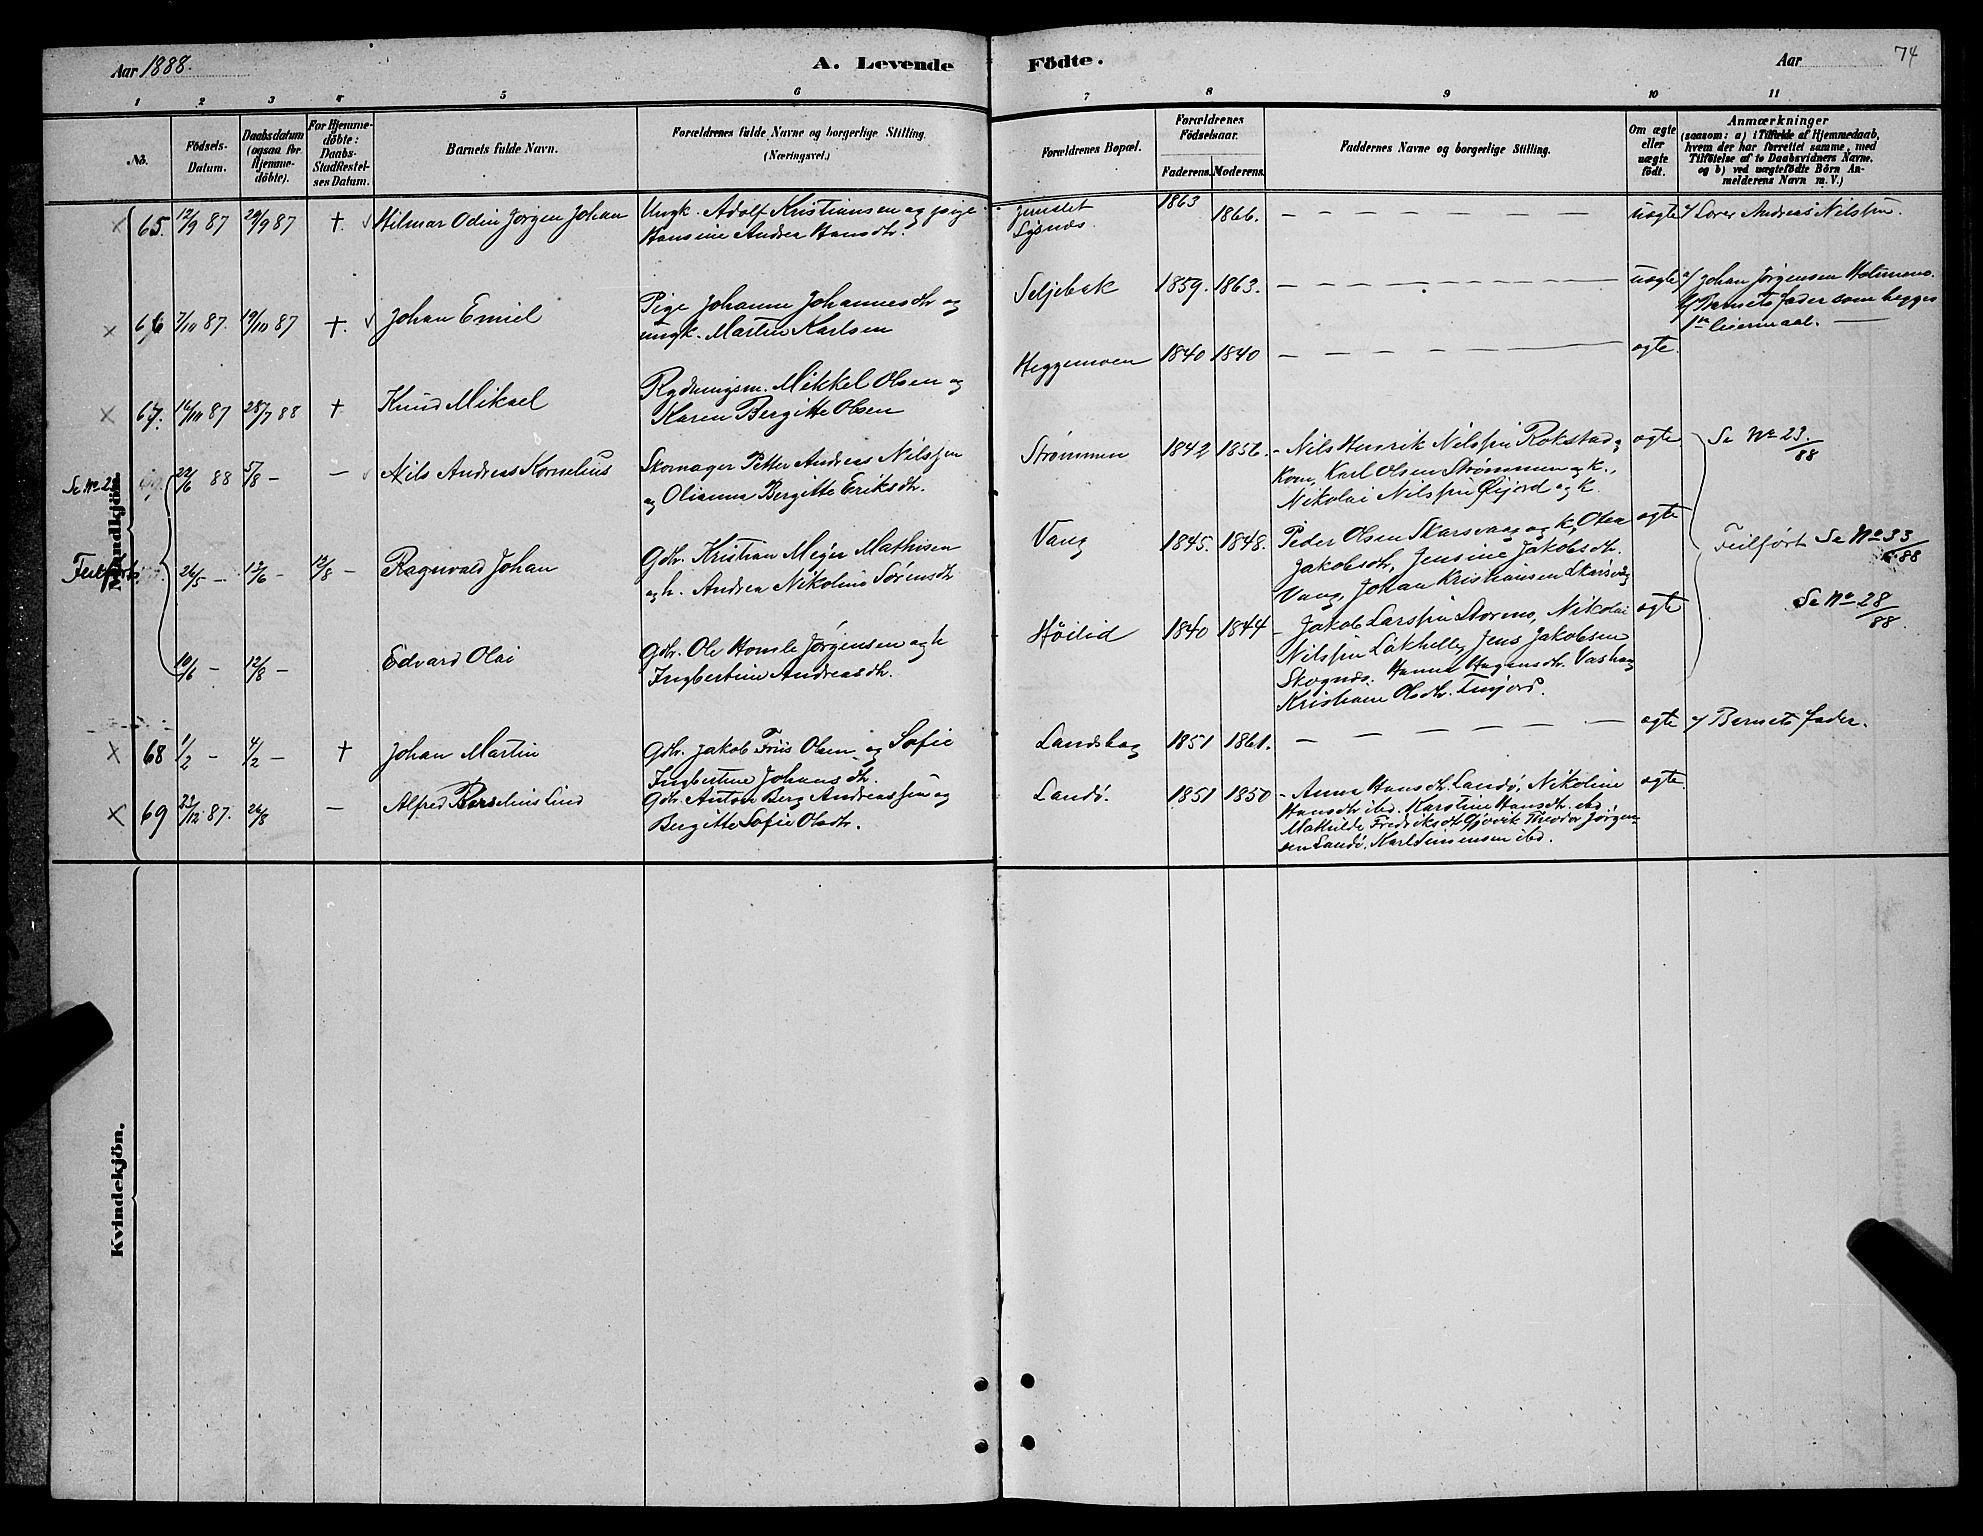 Aar 1888. A. Levende Födte. Aar 74
1 2 3 4 5 6 7 8 9 10 11
No. Födsels-Datum. Daabsdatum (ogsaa for Hjemme-döbte). For Hjemme-döbte: Daabs-Stadfæstel-ses Datum. Barnets fulde Navn. Forældrenes fulde Navne og borgerlige Stilling. (Næringsvei.) Forældrenes Bopæl. Forældrenes Födselsaar. Faderens. Moderens. Faddernes Navne og borgerlige Stilling. Om ægte eller uægte født. Anmærkninger
(saasom: a) i Tilfælde af Hjemmedaab,
hvem der har forrettet samme, med
Tilföielse af to Daabsvidners Navne,
og b) ved uægtefödte Börn An-
melderens Navn m. V.)
Mandkjön.
65. 12/9 87 29/9 87 +. Hilmar Odin Jørgen Johan Ungk. Adolf Kristiansen og pige
Hansine Andrea Hansdtr.
Lysnes. 1863 1866. — uægte
Andreas Nilssen.
66 7/10 87. 19/10 87 +. Johan Emiel Pige Johanne Johannesdtr og
ungk. Martin Karlsen
Seljebak 1859. 1863. — uægte
Johan Jørgensen
Barnets fader som begges
1ste leiermaal. —
67. 16/10 87 28/7 88 + Knud Mikael Rydningsm. Mikkel Olsen og
Karen Bergitte Olsen
Heggemoen 1840 1840 — ægte.
Se No 23 22/6 88 5/8 — — Nils Andreas Kornelius Skomager Petter Andreas Nilssen
og Olianna Bergitte Eriksdtr.
Strømmen 1842 1856. — Nils Henrik Nilssen Rokstad og
Kone, Karl Olsen Strømmen og K.,
Nikolai Nilssen Øijord og K.
ægte Se No 23./88
Feilført 26/5 — 12/6 — 12/8 — Ragnvald Johan Gdbr. Kristian Meyer Mathisen
og h. Andrea Nikoline Sørensdtr
Vang 1845. 1848. Peder Olsen Skarsvaag og K, Olea
Jakobsdtr, Jensine Jakobsdtr.
Vang, Johan Kristiansen Skarsvaag
ægte Feilført Se No 33/88
10/6 — 12/8 — Edvard Olai Gdbr. Ole Homle Jørgensen og h
Ingbertine Andreasdtr.
Høilid 1840 1844 — Jakob Larssen Storenes, Nikolai
Nilssen Lakhelle, Jens Jakobsen
Skognæs. Hanna Hagensdtr.
Kristiane Olsdtr. Finjord.
ægte Se No 28/88.
68 1/2 — 4/2 — + Johan Martin Gdbr. Jakob Friis Olsen og Sofie
Ingbertine Johansdtr.
Landskag 1851 1861. — ægte Barnets fader.
69 23/12 87. 26/8 — Alfred Berselius Lind Gdbr. Anton Berg Andreassen og
Bergitte Sofie Olsdtr.
Landø. 1851 1850 — Anna Hansdtr. Landø, Nikoline
Hansdtr ibd. Karstine Hansdtr. ibd.
Mathilde Fredriksdtr Gjøvik Theodor Jørgen-
sen Landø. Karl Jensensen ibd.
ægte.
Kvindekjön.